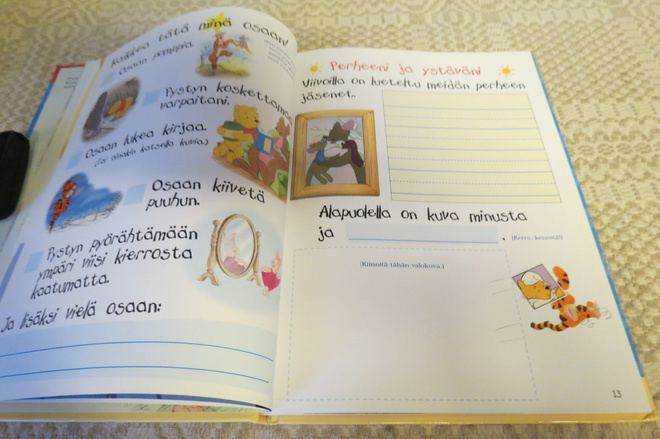 Kaikkea tätä minä osaan!
Osaan pomppia.
Pystyn koskettamaan
varpaitani.
Osaan lukea kirjaa.
(Tai ainakin katsella kuvia.)
Osaan kiivetä
puuhun.
Pystyn pyörähtämään
ympäri viisi kierrosta
kaatumatta.
Ja lisäksi vielä osaan:
Perheeni ja ystäväni
Viivoilla on lueteltu meidän perheen
jäsenet.
Alapuolella on kuva minusta
ja . (Kerro, kenestä!)
(Kiinnitä tähän valokuva.)
13